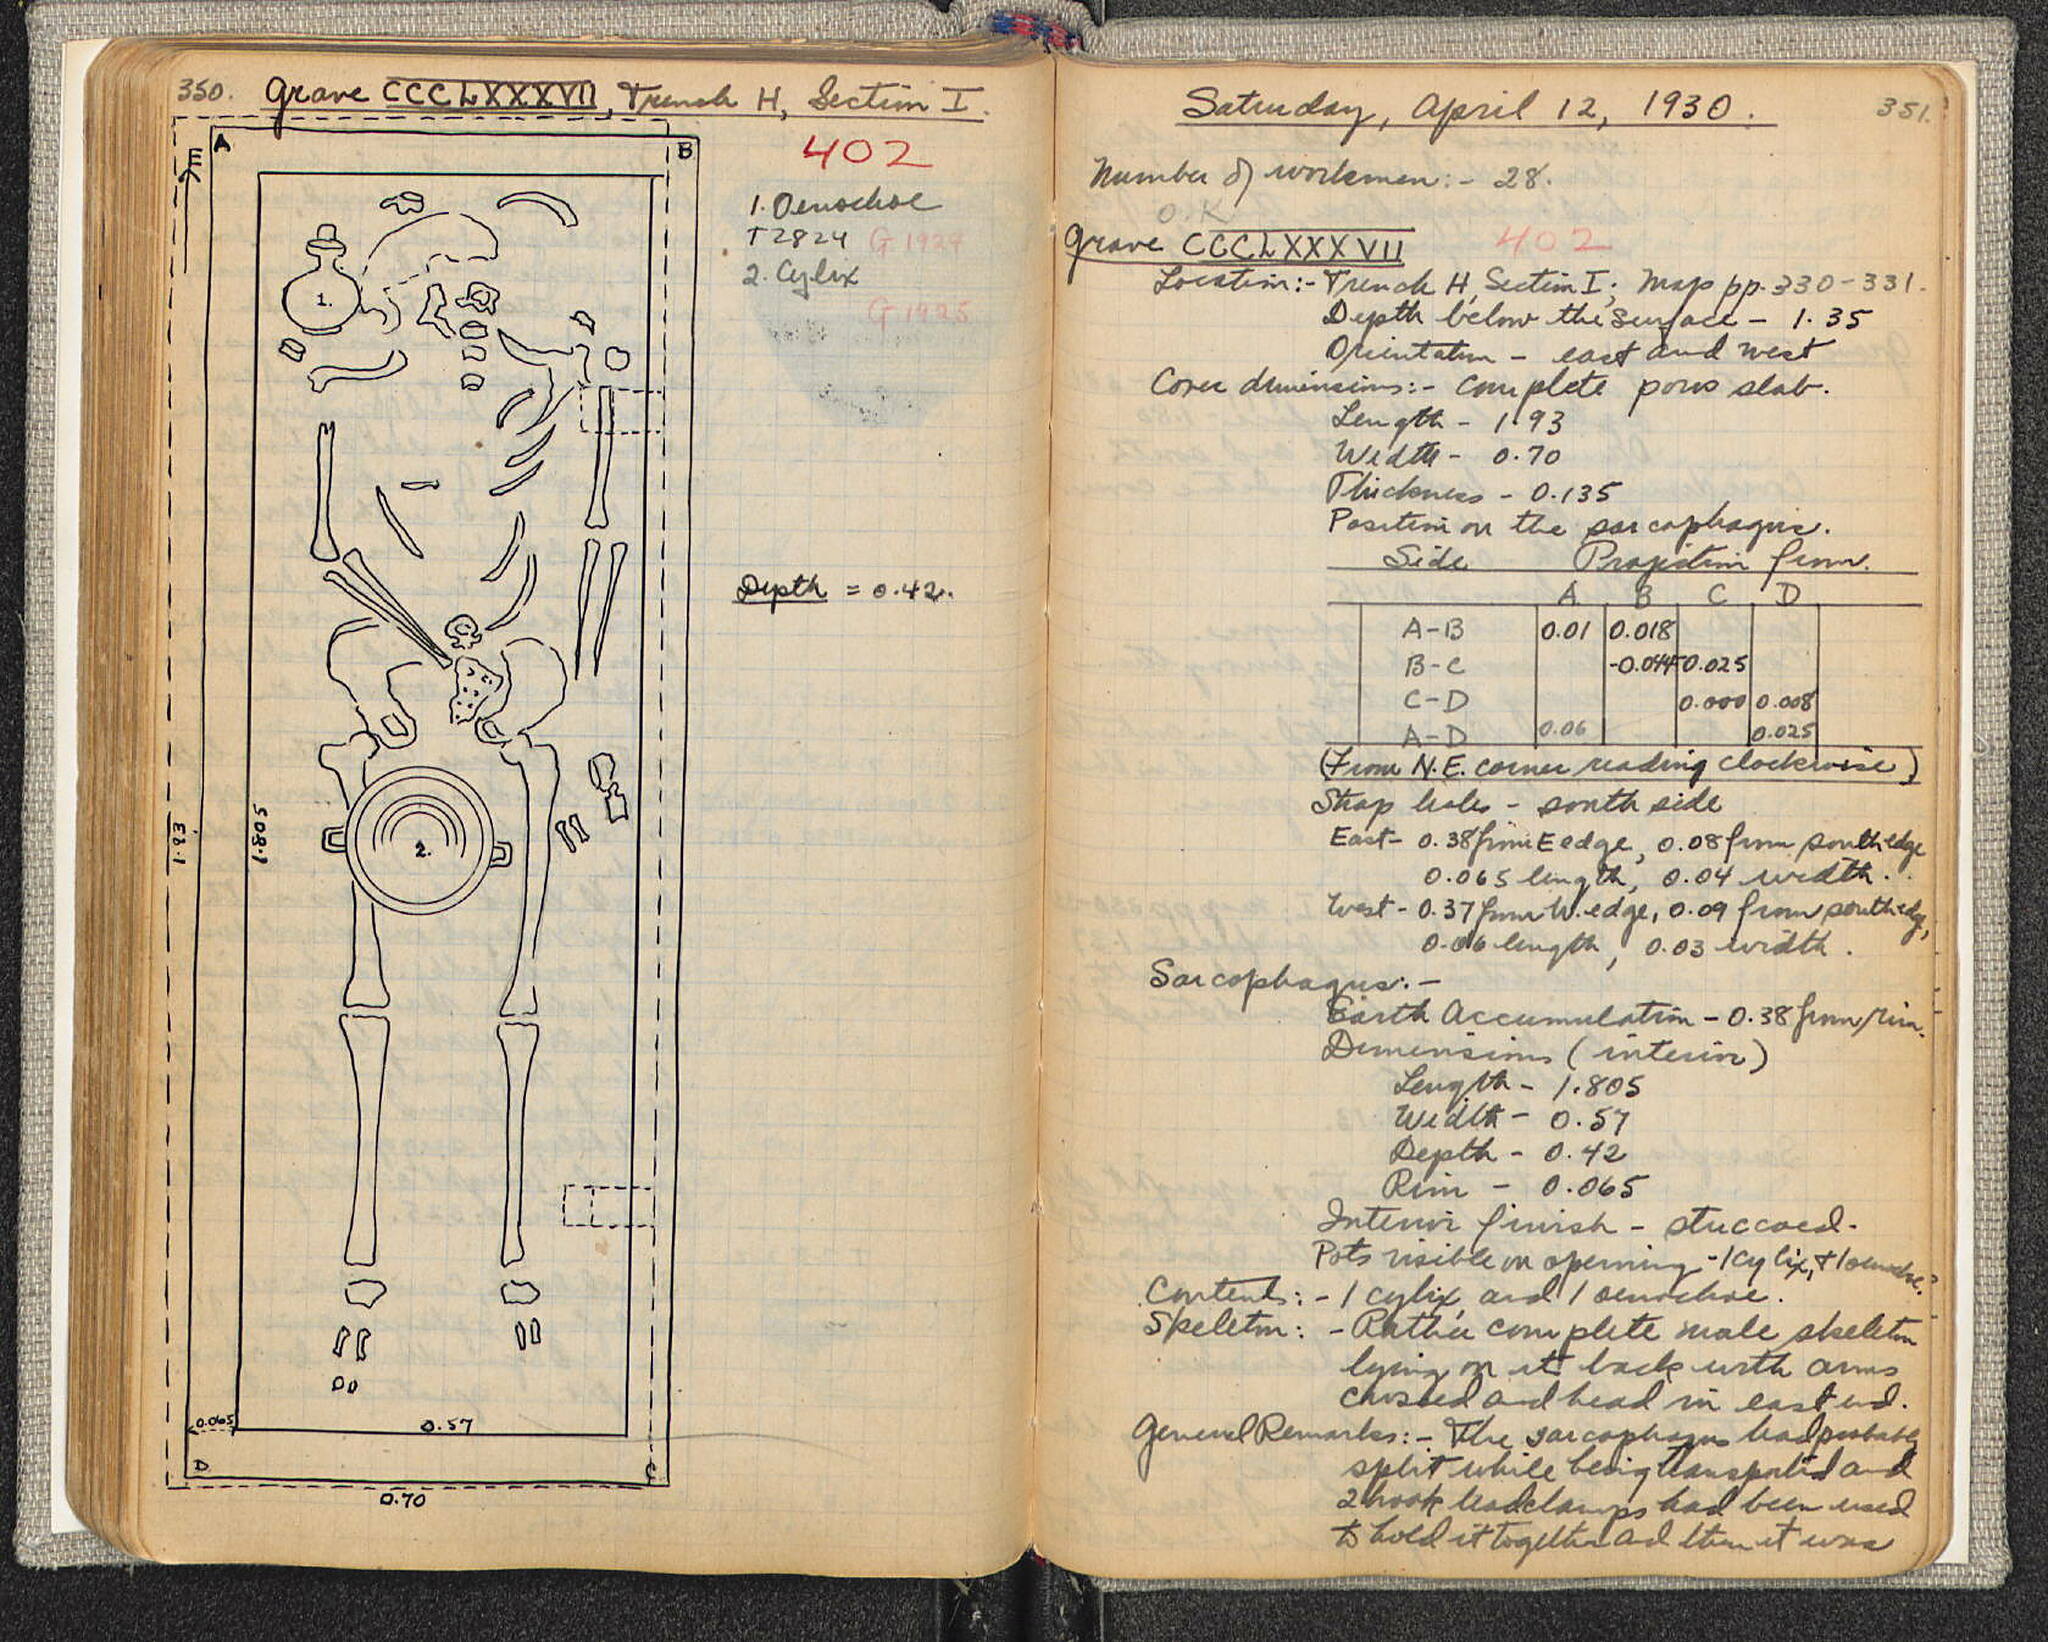 350. Grave CCCLXXXVII, Trench H, Section I.
402
A
B
E
1. Oenochoe
T2824 G 1924
2. Cylix
G 1925
1.
Depth = 0.42.
2.
1.93
1.805
0.065
0.57
D
C
0.70
Saturday, April 12, 1930.
351.
Number of workmen:- 28.
O.K
Grave CCCLXXXVII 402
Location:- Trench H, Section I; Map pp. 330-331.
Depth below the surface - 1.35
Orientation - east and west
Cover dimensions:- complete poros slab.
Length - 1.93
Width - 0.70
Thickness - 0.135
Position on the sarcophagus.
Side Projection from.
A B C D
A-B 0.01 0.018
B-C -0.044 0.025
C-D 0.000 0.008
A-D 0.06 0.025
(From N.E. corner reading clockwise)
Strap holes - south side
East- 0.38 from E edge, 0.08 from south edge
0.065 length, 0.04 width.
West- 0.37 from W. edge, 0.09 from south edge,
0.06 length, 0.03 width.
Sarcophagus:-
Earth Accumulation - 0.38 from rim.
Dimensions (interior)
Length - 1.805
Width - 0.57
Depth - 0.42
Rim - 0.065
Interior finish - stuccoed.
Pots visible on opening - 1 cylix, + 1 oenochoe.
Contents:- 1 cylix, and 1 oenochoe.
Skeleton:- Rather complete male skeleton
lying on it back with arms
crossed and head in east end.
General Remarks:- The sarcophagus had probably
split while being transported and
2 hook lead clamps had been used
to hold it together and then it was